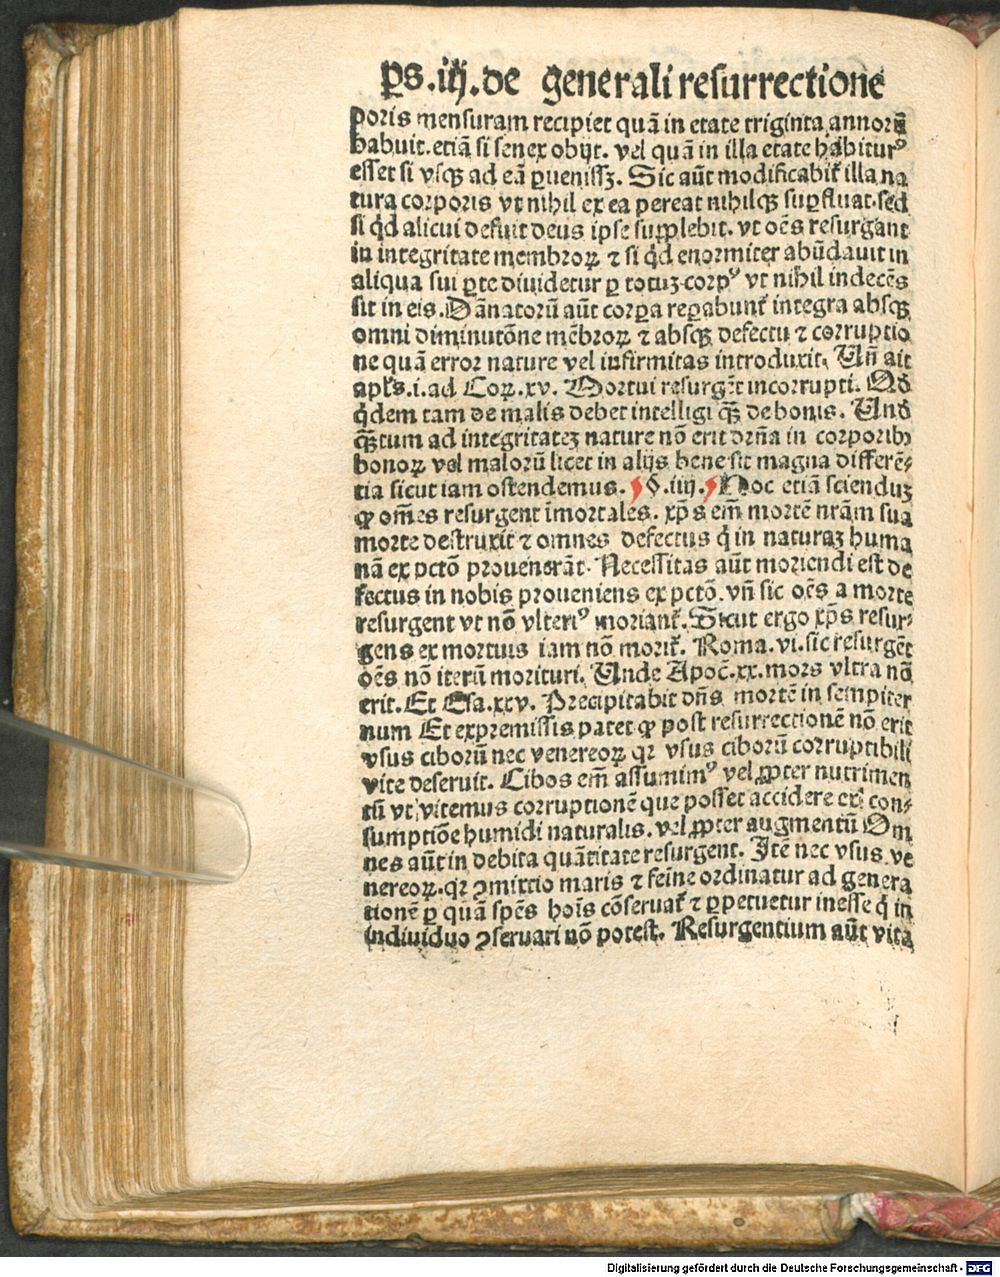 ꝑs.iij.de generali resurrectione
poris mensuram recipiet quā in etate triginta annorū
habuit.etiā si senex obijt. vel quā in illa etate habitur⁹
esset si vsqꝫ ad eā ꝑuenissꝫ. Sic aūt modificabit̄ illa na
tura corporis vt nihil ex ea pereat nihilqꝫ suꝑfluat.sed
si qd̓ alicui defuit deus ipse supplebit. vt oēs resurgant
in integritate membroꝝ ⁊ si qd̓ enormiter abūdauit in
aliqua sui ꝑte diuidetur ꝑ totuꝫ corp⁹ vt nihil indecēs
sit in eis. Dānatorū aūt corꝑa reꝑabunt̄ integra absqꝫ
omni diminutōne mēbroꝝ ⁊ absqꝫ defectu ⁊ corruptio
ne quā error nature vel infirmitas introduxit. Un̄ ait
apl̄s.i.ad Coꝝ.xv. Mortui resurgēt incorrupti. Qd̓
qd̓em tam de malis debet intelligi qꝫ̄ de bonis. Und
qꝫ̄tum ad integritatez nature nō erit dr̄n̄a in corporibꝫ
bonoꝝ vel malorū licet in alijs bene sit magna differē⸗
tia sicut iam ostendemus. §.iiij. Hoc etiā scienduꝫ
ꝙ om̄es resurgent īmortales. xp̄s em̄ mortē nr̄am sua
morte destruxit ⁊ omnes defectus q̓ in naturaꝫ huma
nā ex pctō prouenerāt. Necessitas aūt moriendi est de
fectus in nobis proueniens ex pctō. vn̄ sic oēs a morte
resurgent vt nō vlteri⁹ moriant̄. Sicut ergo xp̄s resur⸗
gens ex mortuis iam nō morit̄. Roma.vi.sic resurgēt
oēs nō iterū morituri. Unde Apoc̄.xx.mors vltra nō
erit. Et Esa.xxv. Precipitabit dn̄s mortē in sempiter
num Et ex premissis patet ꝙ post resurrectionē nō erit
vsus ciborū nec venereoꝝ qr vsus ciborū corruptibili
vite deseruit. Cibos em̄ assumim⁹ vel ꝓpter nutrimen
tū vt vitemus corruptionē que posset accidere ex con⸗
sumptiōe humidi naturalis. vel ꝓpter augmentū Om
nes aūt in debita quātitate resurgent. Itē nec vsus ve
nereoꝝ.qr ꝯmixtio maris ⁊ fein̄e ordinatur ad genera
tionē ꝑ quā spēs hoīs cōseruat̄ ⁊ ꝑpetuetur inesse q̓ in
indiuiduo ꝯseruari nō potest. Resurgentium aūt vita
Digitalisierung gefördert durch die Deutsche Forschungsgemeinschaft - DFG